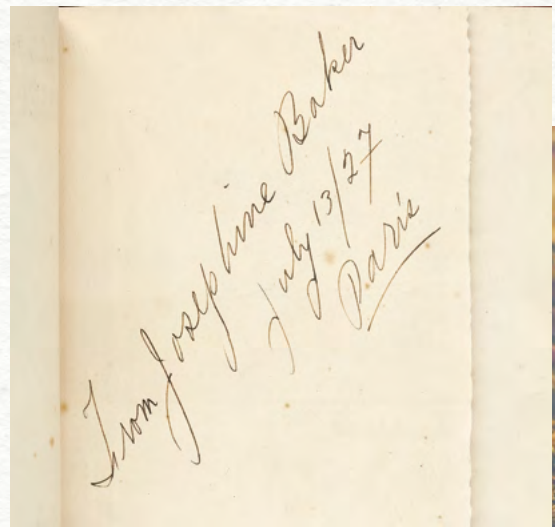 From Josephine Baker
July 13/27
Paris